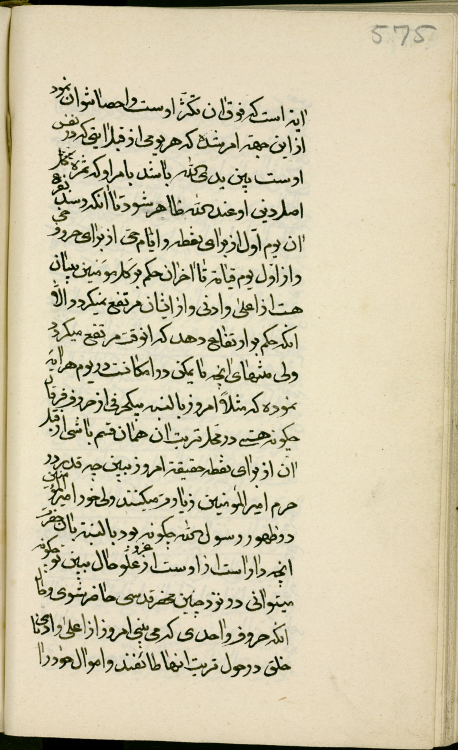 575
ایة است که فوق ان تکثر اوست و احصا نتوان نمود
از این جهة امر شده که هر یومی از قبل ایتی که در نفس
اوست بین یدی الله باشند بامر او که ثمره
اصل دینی او عند الله ظاهر شود تا انکه
ان یوم اول از برای نقطه و ایام حی از برای حروف حی
و از اول یوم قیامة تا اخر ان حکم بر کل مؤمنین بیان
هست از اعلی و ادنی و از ایشان مرتفع نمیگردد الا
انکه حکم بر ارتفاع دهد که انوقت مرتفع میگردد
ولی منتهای انچه تا یمکن در امکانست در یوم هر ایة
نموده که مثلا امروز بالنسبه بیک حرفی از حروف فرقان
چگونه هستی در محل تربت ان همان قسم باشی از قبل
ان از برای نقطه حقیقة امروز ببین چه قدر در
حرم امیر المومنین زیارة میکنند ولی خود امیر المؤمنین
در ظهور رسول الله چگونه بود بالنسبة بان حضرت
انچه دارا است از اوست از علو حال ببین تو چگونه
میتوانی در نزد چنین محضر قدسی حاضر شوی و حال
انکه حروف واحدی که می بینی امروز از اعلی و ادنای
خلق در حول تربت انها طائفند و اموال خود را